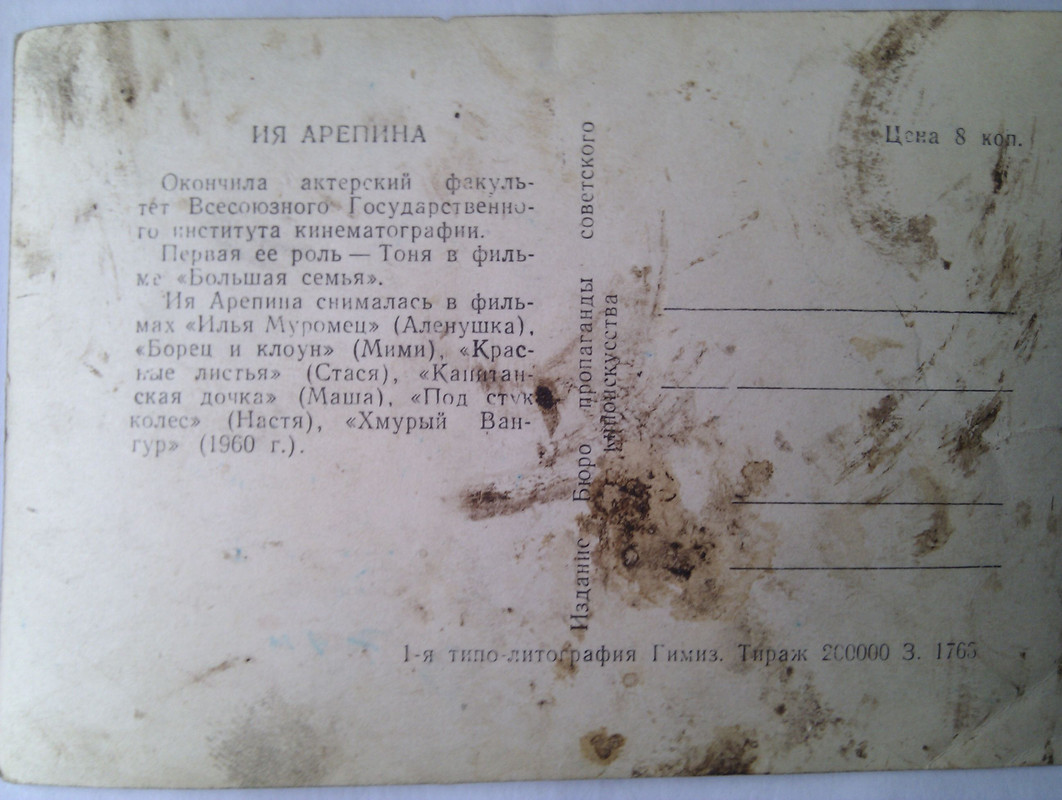 ИЯ АРЕПИНА
Окончила актерский факуль-
тет Всесоюзного Государственно-
го института кинематографии.
Первая ее роль — Тоня в филь-
ме «Большая семья».
Ия Арепина снималась в филь-
мах «Илья Муромец» (Аленушка),
«Борец и клоун» (Мими), «Крас-
ные листья» (Стася), «Капитан-
ская дочка» (Маша), «Под стук
колес» (Настя), «Хмурый Ван-
гур» (1960 г.).
Издание Бюро пропаганды советского
киноискусства
Цена 8 коп.
1-я типо-литография Гимиз. Тираж 200000 З.